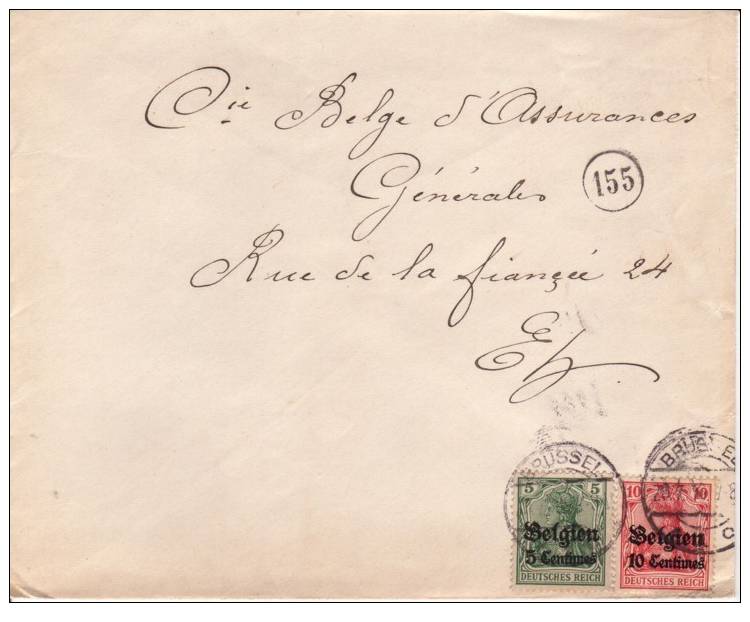 Cie Belge d'Assurances
Générales
155
Rue de la fiancée 24
E/V
BRUSSEL
BRUSSEL
5 5
Belgien
5 Centimes
DEUTSCHES REICH
10 10
Belgien
10 Centimes
DEUTSCHES REICH